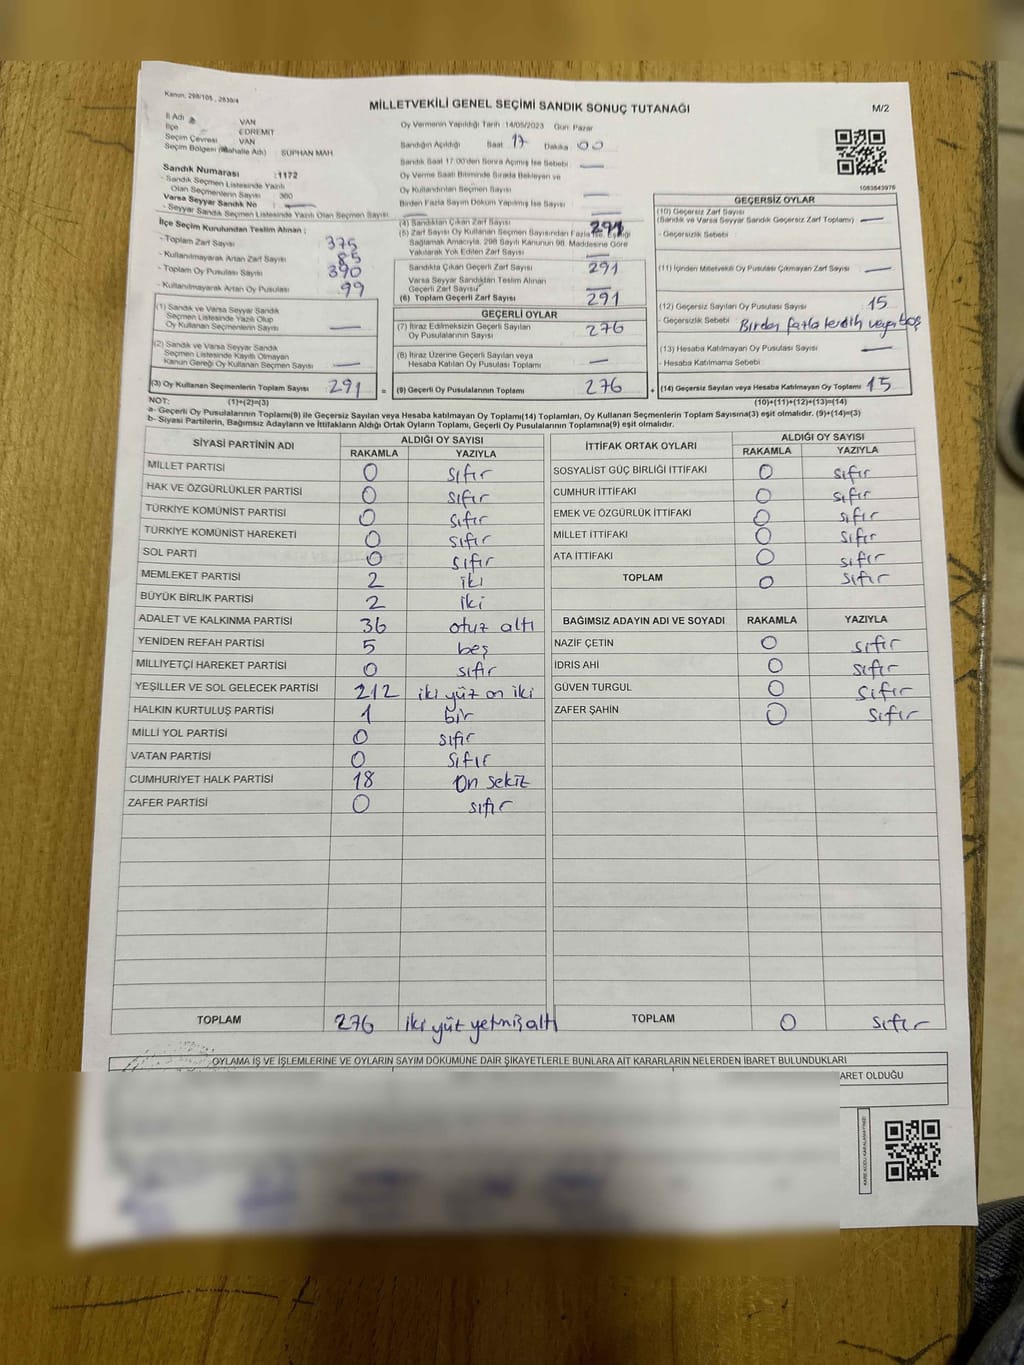 Kanun, 298/105 , 2839/4
MİLLETVEKİLİ GENEL SEÇİMİ SANDIK SONUÇ TUTANAĞI
M/2
İl Adı VAN
İlçe EDREMİT
Seçim Çevresi VAN
Seçim Bölgesi (Mahalle Adı) SUPHAN MAH
Oy Vermenin Yapıldığı Tarih :14/05/2023 Gün: Pazar
Sandığın Açıldığı Saat 17 Dakika 00
Sandık Saat 17:00'den Sonra Açılmış İse Sebebi —
Oy Verme Saati Bitiminde Sırada Bekleyen ve
Oy Kullandırılan Seçmen Sayısı —
Birden Fazla Sayım Döküm Yapılmış İse Sayısı —
1083643976
Sandık Numarası :1172
- Sandık Seçmen Listesinde Yazılı
Olan Seçmenlerin Sayısı 360
Varsa Seyyar Sandık No —
- Seyyar Sandık Seçmen Listesinde Yazılı Olan Seçmen Sayısı —
İlçe Seçim Kurulundan Teslim Alınan ;
- Toplam Zarf Sayısı 375
- Kullanılmayarak Artan Zarf Sayısı 85
- Toplam Oy Pusulası Sayısı 390
- Kullanılmayarak Artan Oy Pusulası 99
(1) Sandık ve Varsa Seyyar Sandık
Seçmen Listesinde Yazılı Olup
Oy Kullanan Seçmenlerin Sayısı —
(2) Sandık ve Varsa Seyyar Sandık
Seçmen Listesinde Kayıtlı Olmayan
Kanun Gereği Oy Kullanan Seçmen Sayısı —
(3) Oy Kullanan Seçmenlerin Toplam Sayısı 291
(4) Sandıktan Çıkan Zarf Sayısı 291
(5) Zarf Sayısı Oy Kullanan Seçmen Sayısından Fazla ise, Eşitliği
Sağlamak Amacıyla, 298 Sayılı Kanunun 98. Maddesine Göre
Yakılarak Yok Edilen Zarf Sayısı —
Sandıkta Çıkan Geçerli Zarf Sayısı 291
Varsa Seyyar Sandıktan Teslim Alınan
Geçerli Zarf Sayısı —
(6) Toplam Geçerli Zarf Sayısı 291
GEÇERLİ OYLAR
(7) İtiraz Edilmeksizin Geçerli Sayılan
Oy Pusulalarının Sayısı 276
(8) İtiraz Üzerine Geçerli Sayılan veya
Hesaba Katılan Oy Pusulası Sayısı —
= (9) Geçerli Oy Pusulalarının Toplamı 276
GEÇERSİZ OYLAR
(10) Geçersiz Zarf Sayısı
(Sandık ve Varsa Seyyar Sandık Geçersiz Zarf Toplamı) —
- Geçersizlik Sebebi
(11) İçinden Milletvekili Oy Pusulası Çıkmayan Zarf Sayısı —
(12) Geçersiz Sayılan Oy Pusulası Sayısı 15
- Geçersizlik Sebebi Birden fazla tercih veya boş
(13) Hesaba Katılmayan Oy Pusulası Sayısı —
- Hesaba Katılmama Sebebi
+ (14) Geçersiz Sayılan veya Hesaba Katılmayan Oy Toplamı 15
NOT: (1)+(2)=(3) (10)+(11)+(12)+(13)=(14)
a- Geçerli Oy Pusulalarının Toplamı(9) ile Geçersiz Sayılan veya Hesaba katılmayan Oy Toplamı(14) Toplamları, Oy Kullanan Seçmenlerin Toplam Sayısına(3) eşit olmalıdır. (9)+(14)=(3)
b- Siyasi Partilerin, Bağımsız Adayların ve İttifakların Aldığı Ortak Oyların Toplamı, Geçerli Oy Pusulalarının Toplamına(9) eşit olmalıdır.
SİYASİ PARTİNİN ADI ALDIĞI OY SAYISI
RAKAMLA YAZIYLA
MİLLET PARTİSİ 0 sıfır
HAK VE ÖZGÜRLÜKLER PARTİSİ 0 sıfır
TÜRKİYE KOMÜNİST PARTİSİ 0 sıfır
TÜRKİYE KOMÜNİST HAREKETİ 0 sıfır
SOL PARTİ 0 sıfır
MEMLEKET PARTİSİ 2 iki
BÜYÜK BİRLİK PARTİSİ 2 iki
ADALET VE KALKINMA PARTİSİ 36 otuz altı
YENİDEN REFAH PARTİSİ 5 beş
MİLLİYETÇİ HAREKET PARTİSİ 0 sıfır
YEŞİLLER VE SOL GELECEK PARTİSİ 212 iki yüz on iki
HALKIN KURTULUŞ PARTİSİ 1 bir
MİLLİ YOL PARTİSİ 0 sıfır
VATAN PARTİSİ 0 sıfır
CUMHURİYET HALK PARTİSİ 18 on sekiz
ZAFER PARTİSİ 0 sıfır
TOPLAM 276 iki yüz yetmiş altı
İTTİFAK ORTAK OYLARI ALDIĞI OY SAYISI
RAKAMLA YAZIYLA
SOSYALİST GÜÇ BİRLİĞİ İTTİFAKI 0 sıfır
CUMHUR İTTİFAKI 0 sıfır
EMEK VE ÖZGÜRLÜK İTTİFAKI 0 sıfır
MİLLET İTTİFAKI 0 sıfır
ATA İTTİFAKI 0 sıfır
TOPLAM 0 sıfır
BAĞIMSIZ ADAYIN ADI VE SOYADI RAKAMLA YAZIYLA
NAZİF ÇETİN 0 sıfır
İDRİS AHİ 0 sıfır
GÜVEN TURGUL 0 sıfır
ZAFER ŞAHİN 0 sıfır
TOPLAM 0 sıfır
OYLAMA İŞ VE İŞLEMLERİNE VE OYLARIN SAYIM DÖKÜMÜNE DAİR ŞİKAYETLERLE BUNLARA AİT KARARLARIN NELERDEN İBARET BULUNDUKLARI
ARET OLDUĞU